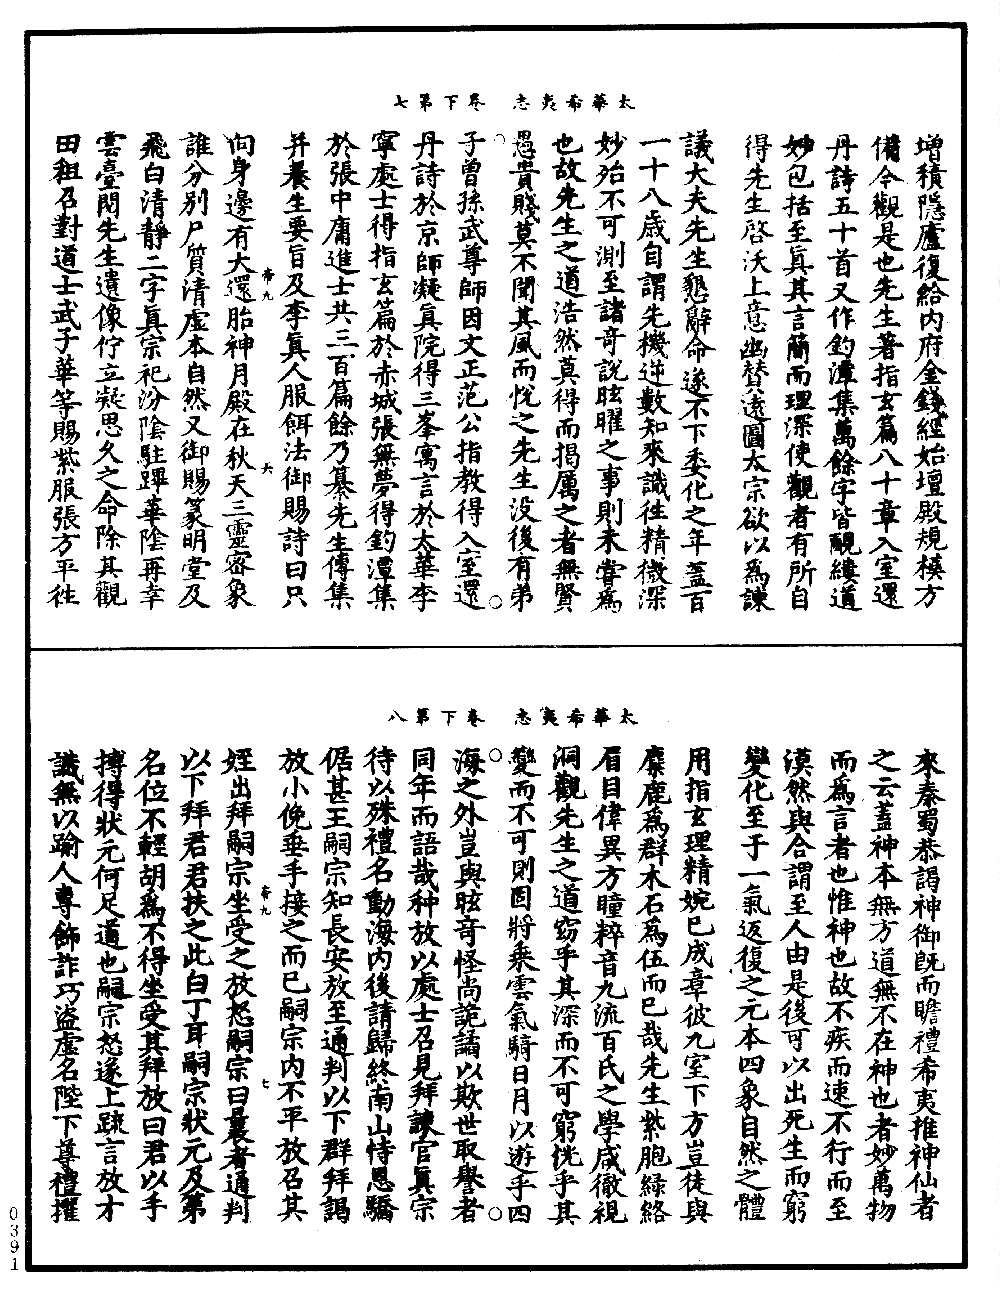 太華希夷志　卷下第七
增積隱廬復給內府金錢經始壇殿規橅方
備今觀是也先生著指玄篇八十章入室還
丹詩五十首又作釣潭集萬餘字皆覼縷道
妙包括至真其言簡而理深使觀者有所自
得先生啓沃上意幽替遠圖太宗欲以為諫
議大夫先生懇辭命遂不下委化之年蓋百
一十八歲自謂先機逆數知來識往精微深
妙殆不可測至諸奇說眩曜之事則未嘗為
也故先生之道浩然莫得而揭厲之者無賢
愚貴賤莫不聞其風而悅之先生沒後有弟
子曾孫武尊師因文正范公指教得入室還
丹詩於京師凝真院得三峯寓言於太華李
寧處士得指玄篇於赤城張無夢得釣潭集
於張中庸進士共三百篇餘乃纂先生傳集
并養生要旨及李真人服餌法御賜詩曰只
帝九　六
向身邊有大還胎神月殿在秋天三靈密象
誰分別尸質清虛本自然又御賜篆明堂及
飛白清靜二字真宗祀汾陰駐蹕華陰再幸
雲臺閱先生遺像佇立凝思久之命除其觀
田租召對道士武子華等賜紫服張方平往
太華希夷志　卷下第八
來秦蜀恭謁神御既而瞻禮希夷推神仙者
之云蓋神本無方道無不在神也者妙萬物
而為言者也惟神也故不疾而速不行而至
漠然與合謂至人由是後可以出死生而窮
變化至于一氣返復之元本四象自然之體
用指玄理精婉已成章彼九室下方豈徒與
麋鹿為群木石為伍而已哉先生紫胞綠絡
眉目偉異方瞳粹音九流百氏之學咸徹視
洞觀先生之道窈乎其深而不可窮恍乎其
變而不可則固將乘雲氣騎日月以遊乎四
海之外豈與眩奇怪尚詭譎以欺世取譽者
同年而語哉种放以處士召見拜諫官真宗
待以殊禮名動海內後請歸終南山恃恩驕
倨甚王嗣宗知長安放至通判以下群拜謁
放小俛垂手接之而已嗣宗內不平放召其
帝九　七
姪出拜嗣宗坐受之放怒嗣宗曰曩者通判
以下拜君君扶之此白丁耳嗣宗狀元及第
名位不輕胡為不得坐受其拜放曰君以手
搏得狀元何足道也嗣宗怒遂上疏言放才
識無以踰人專飾詐巧盜虛名陛下尊禮擢
0391